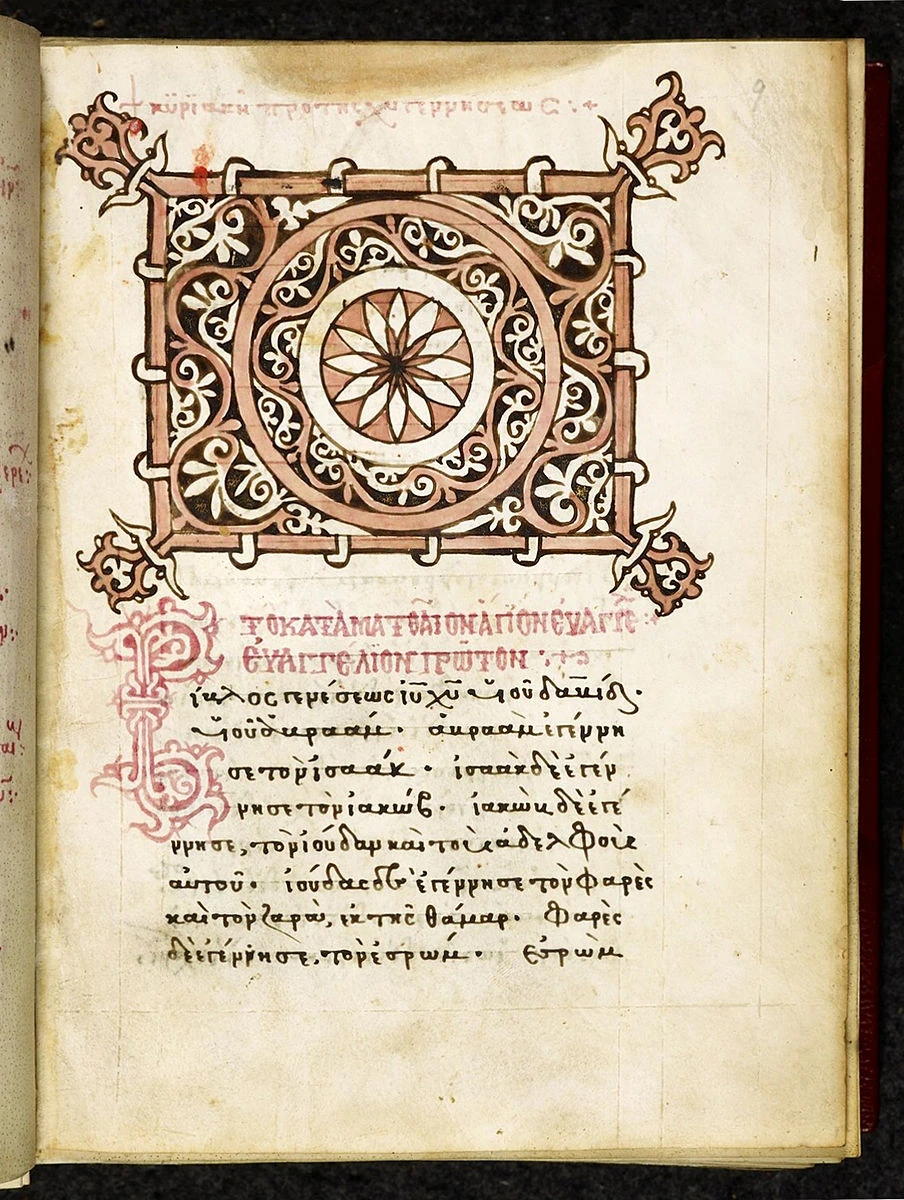 9
+ κυριακῆ προ της χυ γεννησεωσ :+
τὸ κατὰ ματθαῖον ἅγιον εὐαγγε
εὐαγγέλιον πρῶτον :+
Βίβλος γενέσεως ἰυ χυ υἱοῦ δαυίδ·
υἱοῦ ἀβραάμ· ἀβραὰμ ἐγέννη
σε τὸν ἰσαάκ· ἰσαὰκ δὲ ἐγέν
νησε τὸν ἰακώβ· ἰακὼβ δὲ ἐγέ
ννησε, τὸν ἰούδαν καὶ τοὺς ἀδελφοὺς
αὐτοῦ· ἰούδας δὲ ἐγέννησε τὸν φαρὲς
καὶ τὸν ζαρὰ, ἐκ τῆς θάμαρ· Φαρὲς
δὲ ἐγέννησε, τὸν ἐσρώμ· Ἐσρὼμ